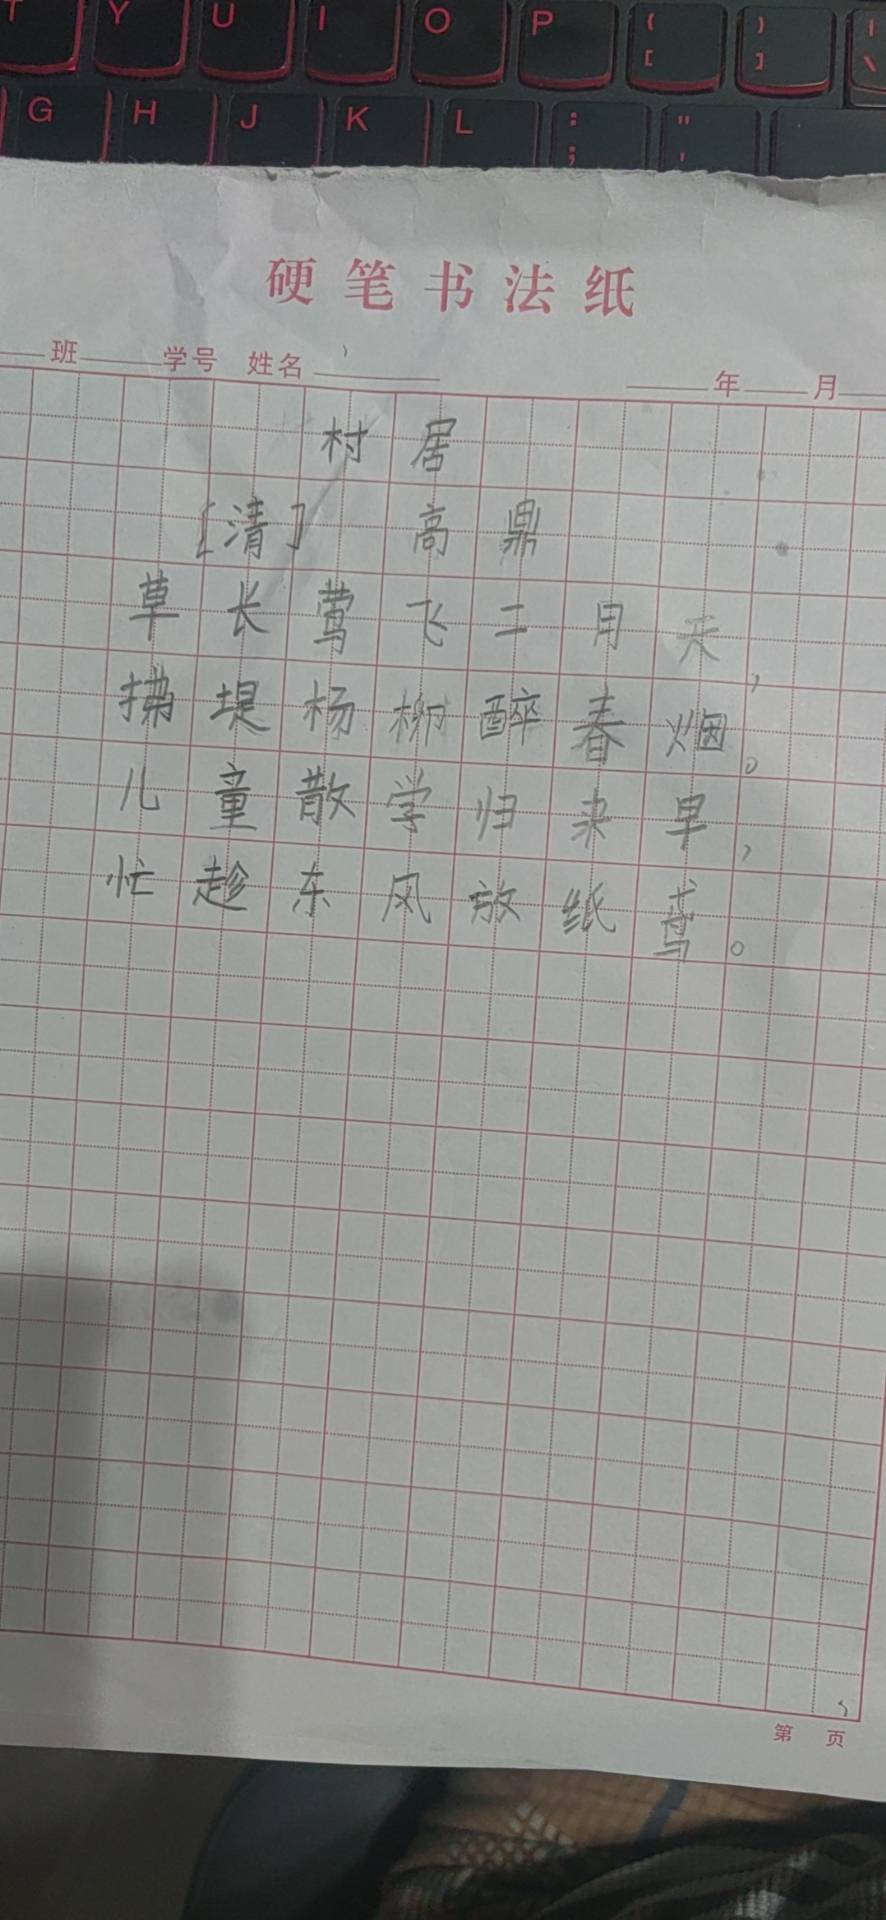 T Y U I O P { [ } ] | \
G H J K L : ; " '
硬笔书法纸
班 学号 姓名 年 月
村居
[清] 高鼎
草长莺飞二月天，
拂堤杨柳醉春烟。
儿童散学归来早，
忙趁东风放纸鸢。
第 页